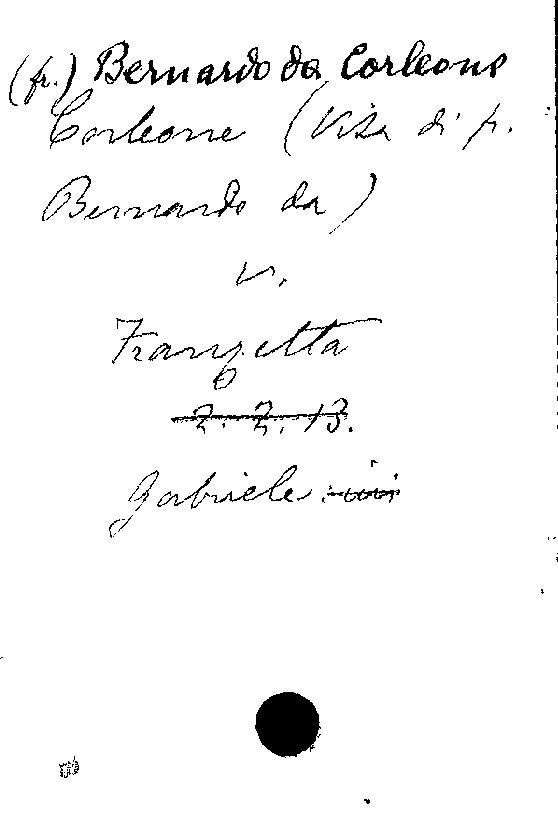 (fr.) Bernardo da Corleone
Corleone (Vita di fr.
Bernardo da)
v.
Frangetta
2. 2. 13.
Gabriele